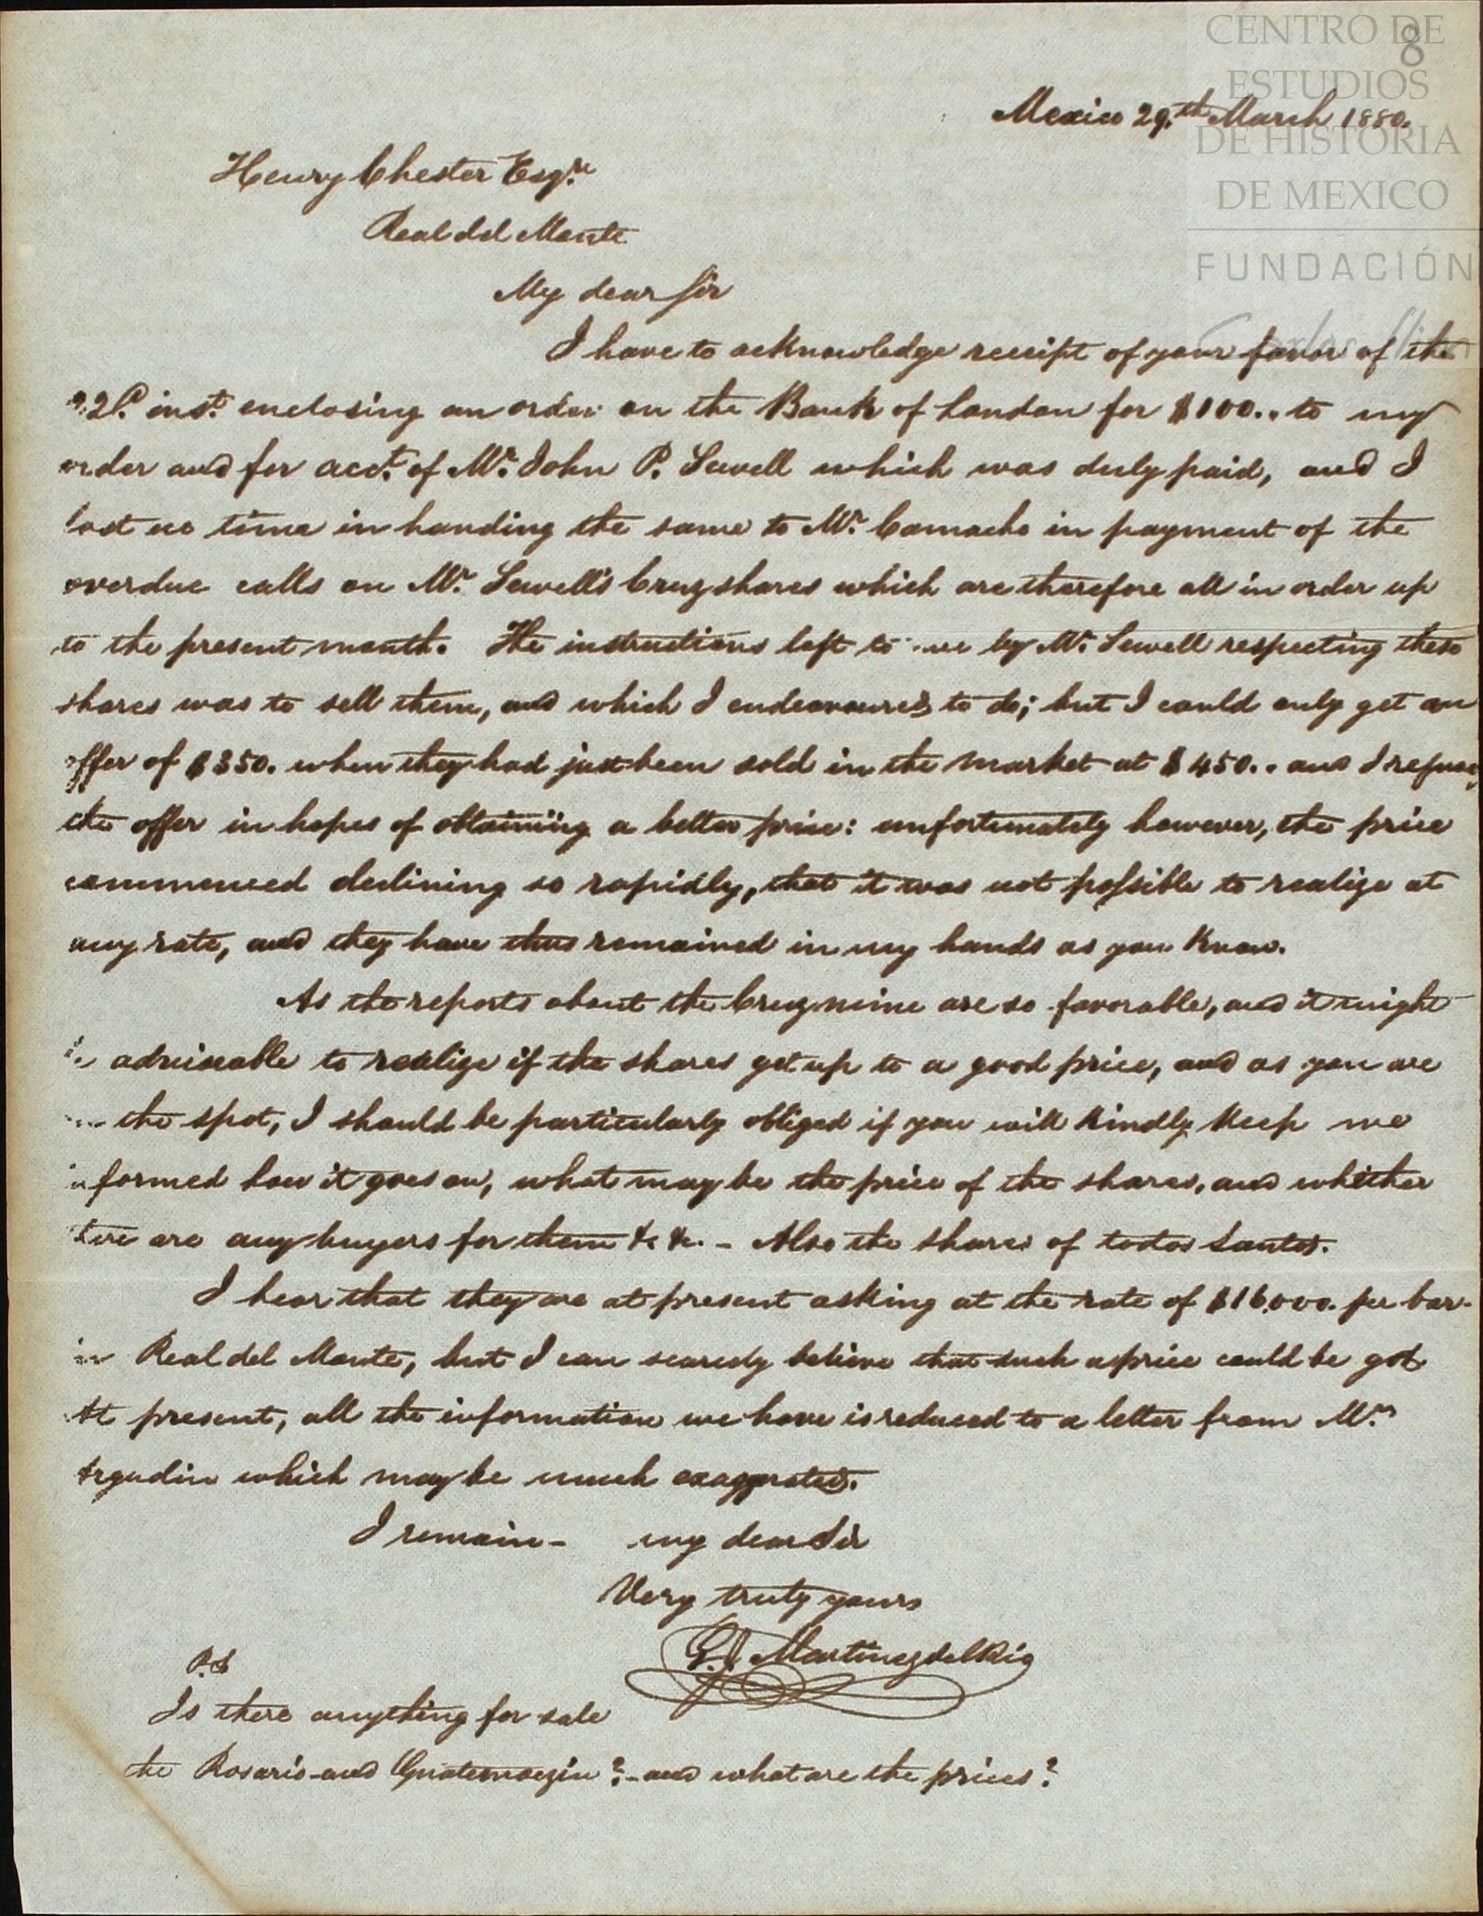 CENTRO DE
ESTUDIOS
DE HISTORIA
DE MEXICO
FUNDACIÓN
8
Mexico 29.th March 1880.
Henry Chester Esqre
Real del Monte
My dear Sir
I have to acknowledge receipt of your favor of the
22d. inst. enclosing an order on the Bank of London for $100.. to my
order and for acct. of Mr. John P. Sewell which was duly paid, and I
lost no time in handing the same to Mr. Camacho in payment of the
overdue calls on Mr. Sewell's Cruz shares which are therefore all in order up
to the present month. The instructions left to me by Mr. Sewell respecting these
shares was to sell them, and which I endeavoured to do; but I could only get an
offer of $350. when they had just been sold in the market at $450.. and I refused
the offer in hopes of obtaining a better price: unfortunately however, the price
commenced declining so rapidly, that it was not possible to realize at
any rate, and they have thus remained in my hands as you know.
As the reports about the Cruz mine are so favorable, and it might
be adviseable to realize if the shares get up to a good price, and as you are
on the spot, I should be particularly obliged if you will kindly keep me
informed how it goes on, what may be the price of the shares, and whether
there are any buyers for them &c &c. - Also the shares of todos Santos.
I hear that they are at present asking at the rate of $16,000. per bar.
in Real del Monte, but I can scarcely believe that such a price could be got
At present, all the information we have is reduced to a letter from Mr.
Argudin which may be much exaggerated.
I remain - my dear Sir
Very truly yours
G. J. Martinez del Rio
P.S
Is there anything for sale
the Rosario and Guatemozin? - and what are the prices?